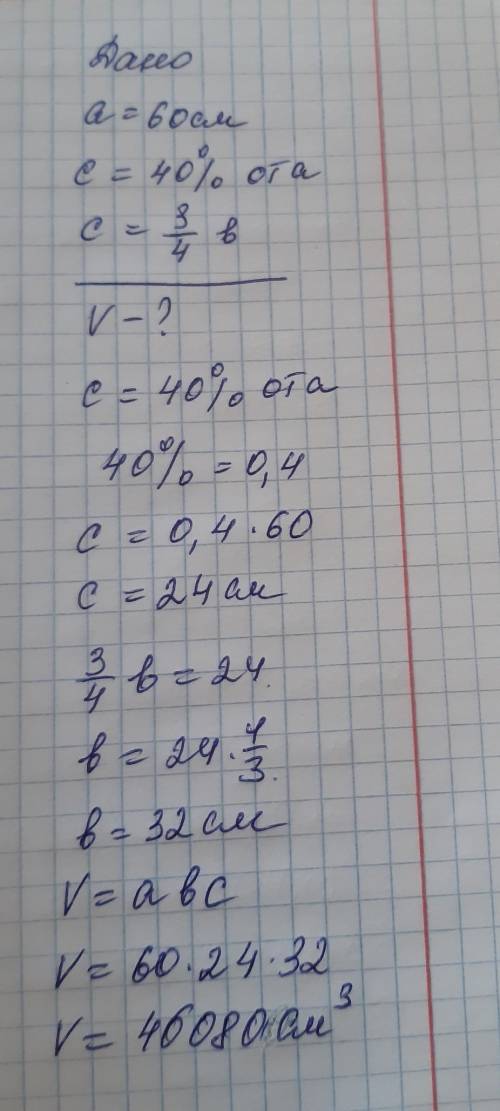 Дано
a = 60см
c = 40% от a
c = 3/4 в
V - ?
c = 40% от a
40% = 0,4
c = 0,4 · 60
c = 24 см
3/4 в = 24
в = 24 · 4/3
в = 32 см
V = a в c
V = 60 · 24 · 32
V = 46080 см³